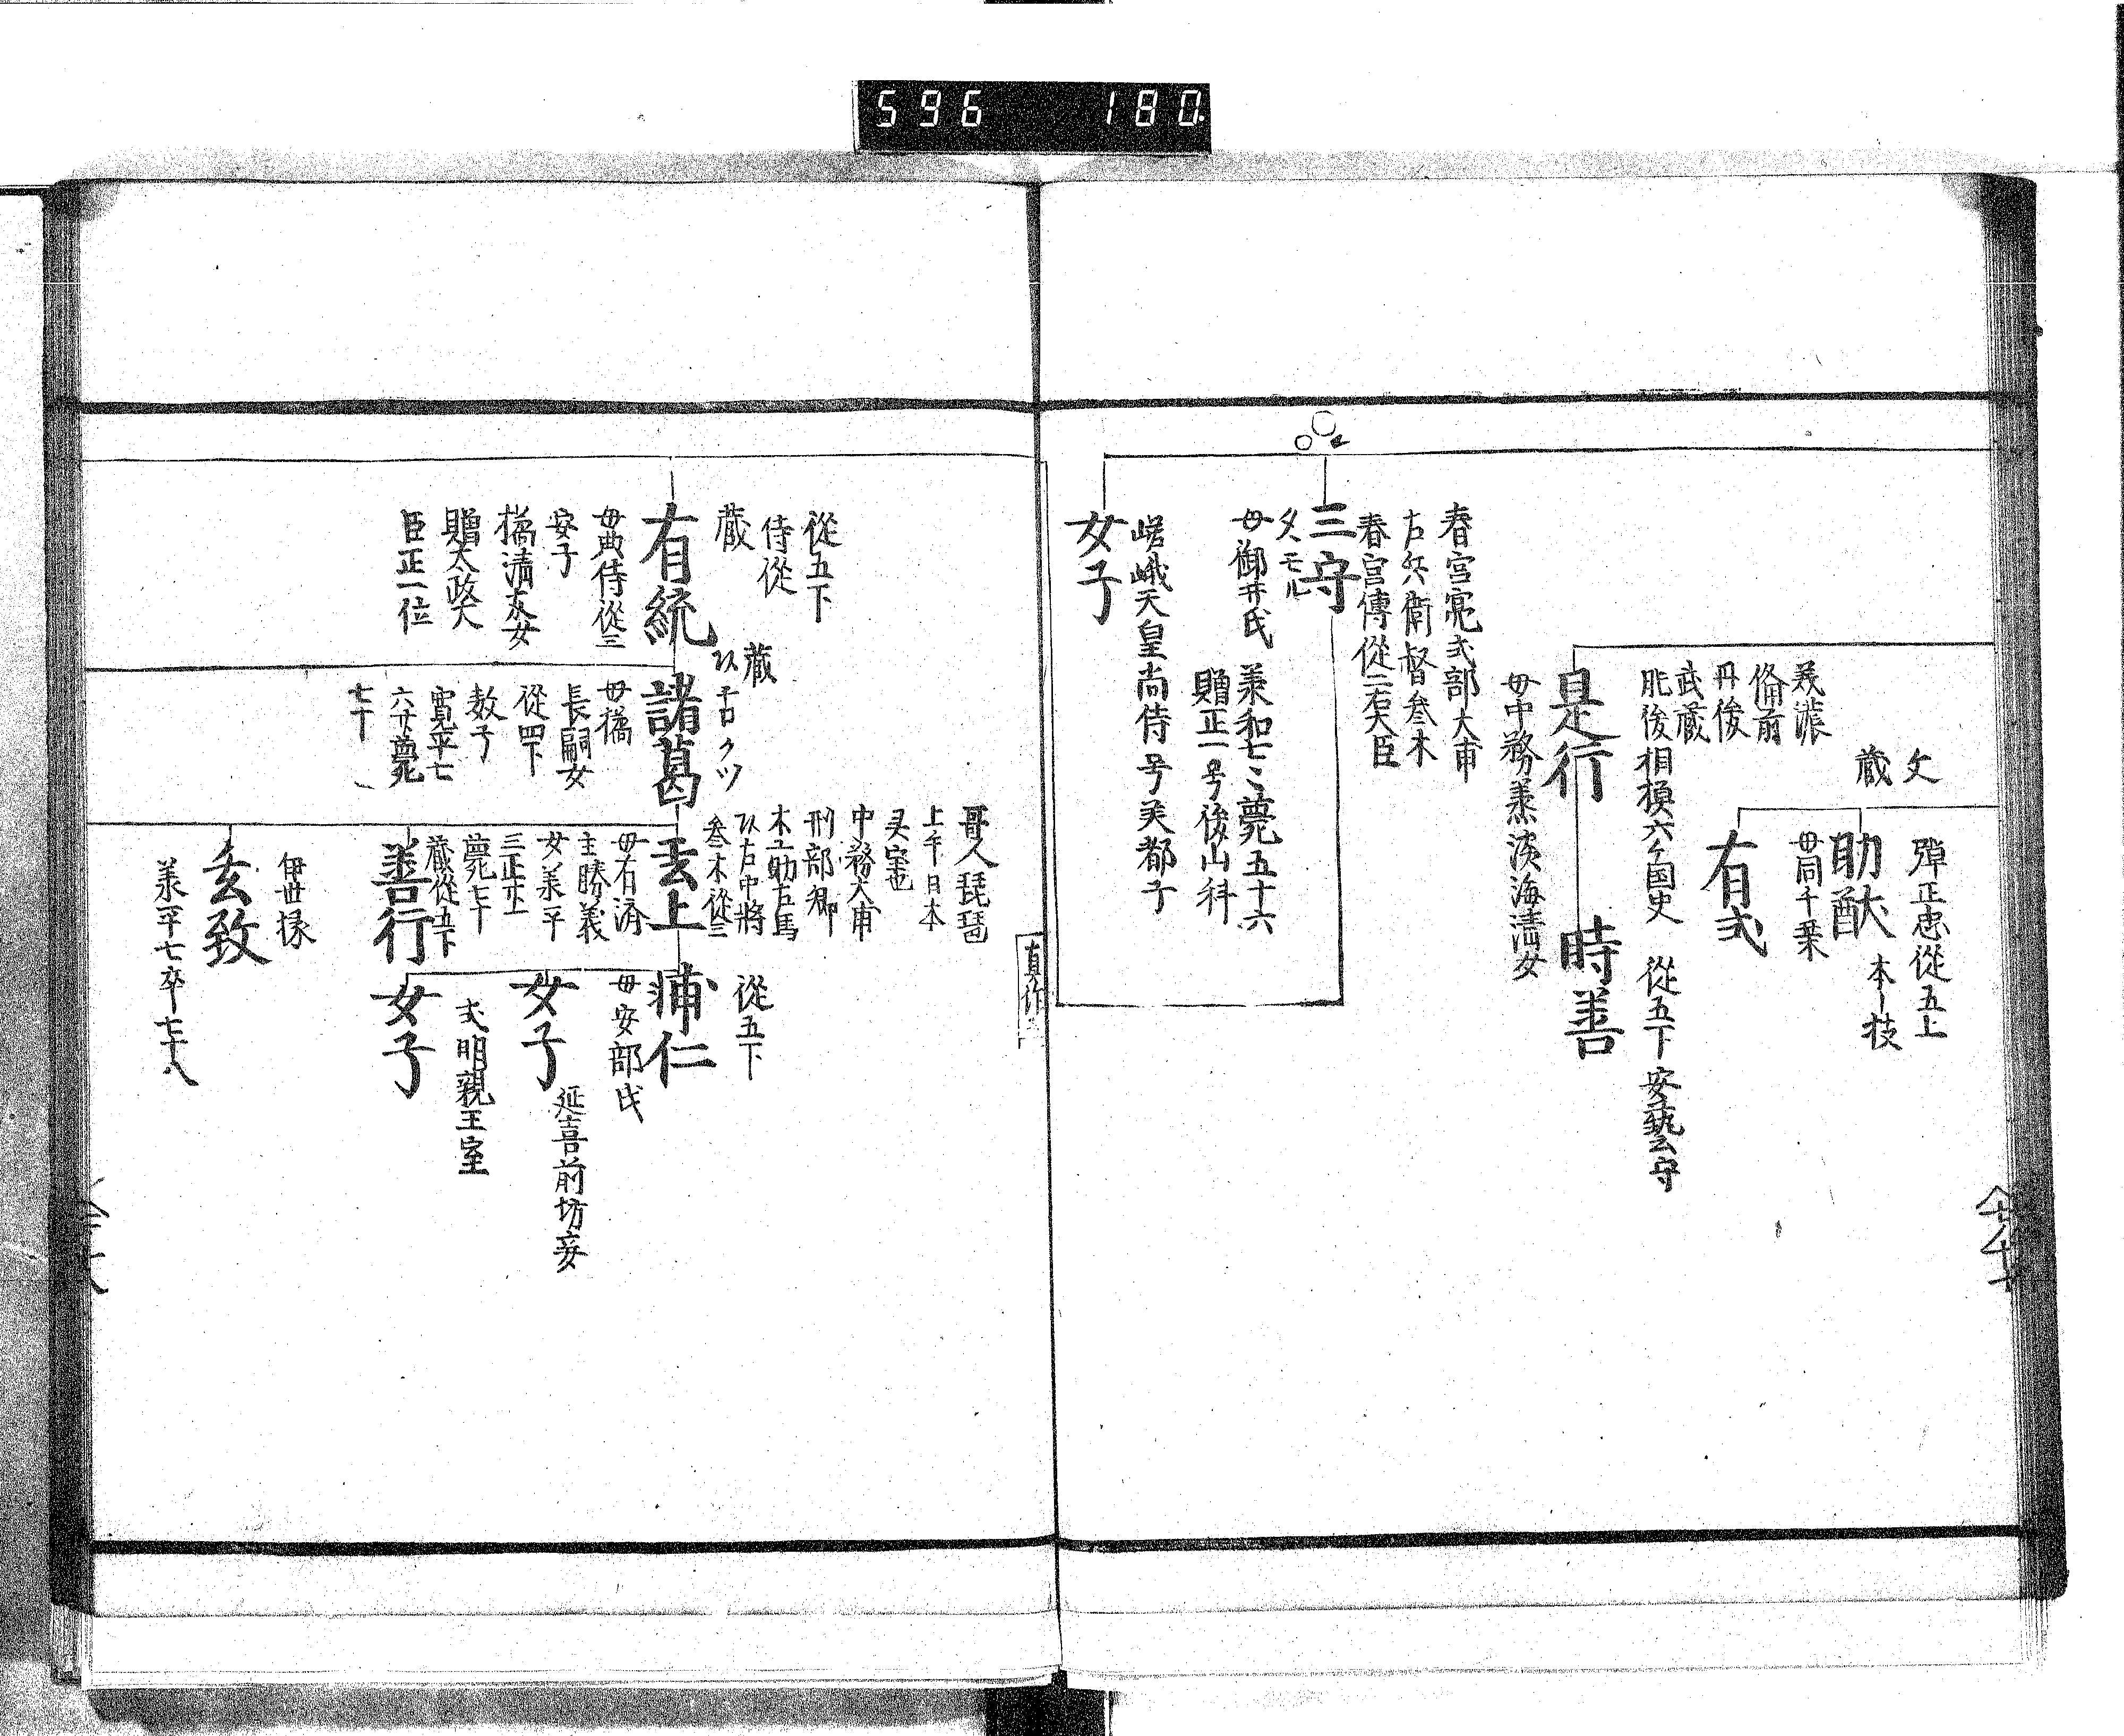 596 180.
文
蔵
弾正忠從五上
助猷
本ー技
母同千葉
有式
美濃
備前
丹後
武蔵
肥後相模六ケ国史
是行
母中務羕淡海淸女
從五下安藝守
時善
春宮亮式部大甫
右兵衛督叅木
春宮傳從二右大臣
三守
タヽモル
母御井氏
羕和七ミ薨五十六
贈正一号後山科
嵯峨天皇尚侍号美都子
女子
真作三
從五下
侍從
蔵
有統
母典侍從三
安子
橘淸友女
贈太政大
臣正一位
蔵
諸葛
母橘
長嗣女
從四下
数子
寛平七
六廿薨
七十
哥人琵琶
上手日本
灵室也
中務大甫
刑部卿
木工助右馬
以右中將
叅木從三
玄上
母有済
主勝義
女羕平
三正廿一
薨七十
從五下
甫仁
母安部氏
女子
延喜前坊妾
式明親王室
女子
蔵從五下
善行
伊世掾
玄致
羕平七卒七十八